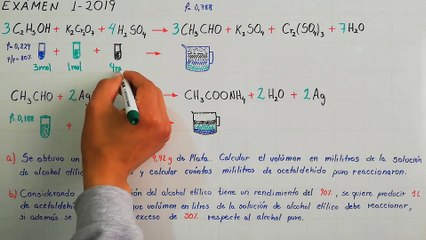 EXAMEN 1-2019
ρ=0,788
3C₂H₅OH + K₂Cr₂O₇ + 4H₂SO₄ → 3CH₃CHO + K₂SO₄ + Cr₂(SO₄)₃ + 7H₂O
ρ=0,829
P/P=80%
3mol 1mol 4m
CH₃CHO + 2Ag → CH₃COONH₄ + 2H₂O + 2Ag
ρ=0,788
a) Se obtuvo un 4,92 g de Plata. Calcular el volúmen en mililitros de la solución
de alcohol etílico y calcular cuántos mililitros de acetaldehído puro reaccionaron.
b) Considerando ción del alcohol etílico tiene un rendimiento del 90%, se quiere producir 1L
de acetaldehído que volúmen en litros de la solución de alcohol etílico debe reaccionar,
si además se exceso de 30% respecto al alcohol puro.